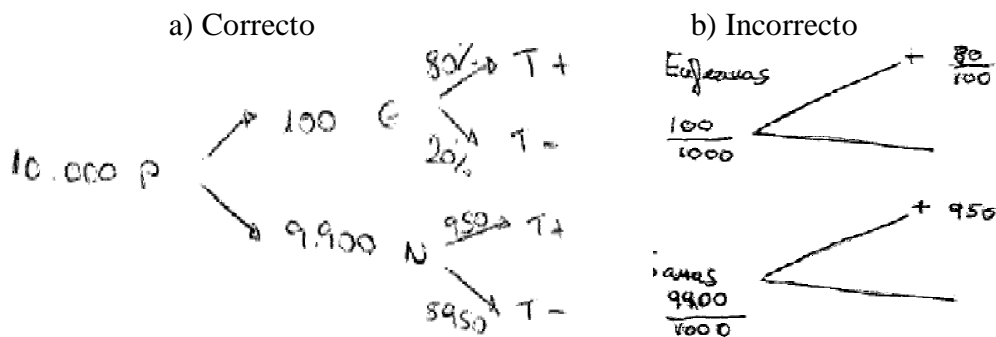 a) Correcto
10.000 P
100 E
80% T +
20% T -
9.900 N
950 T +
8950 T -
b) Incorrecto
Enfermas
100
1000
+ 80
100
Sanas
9900
1000
+ 950